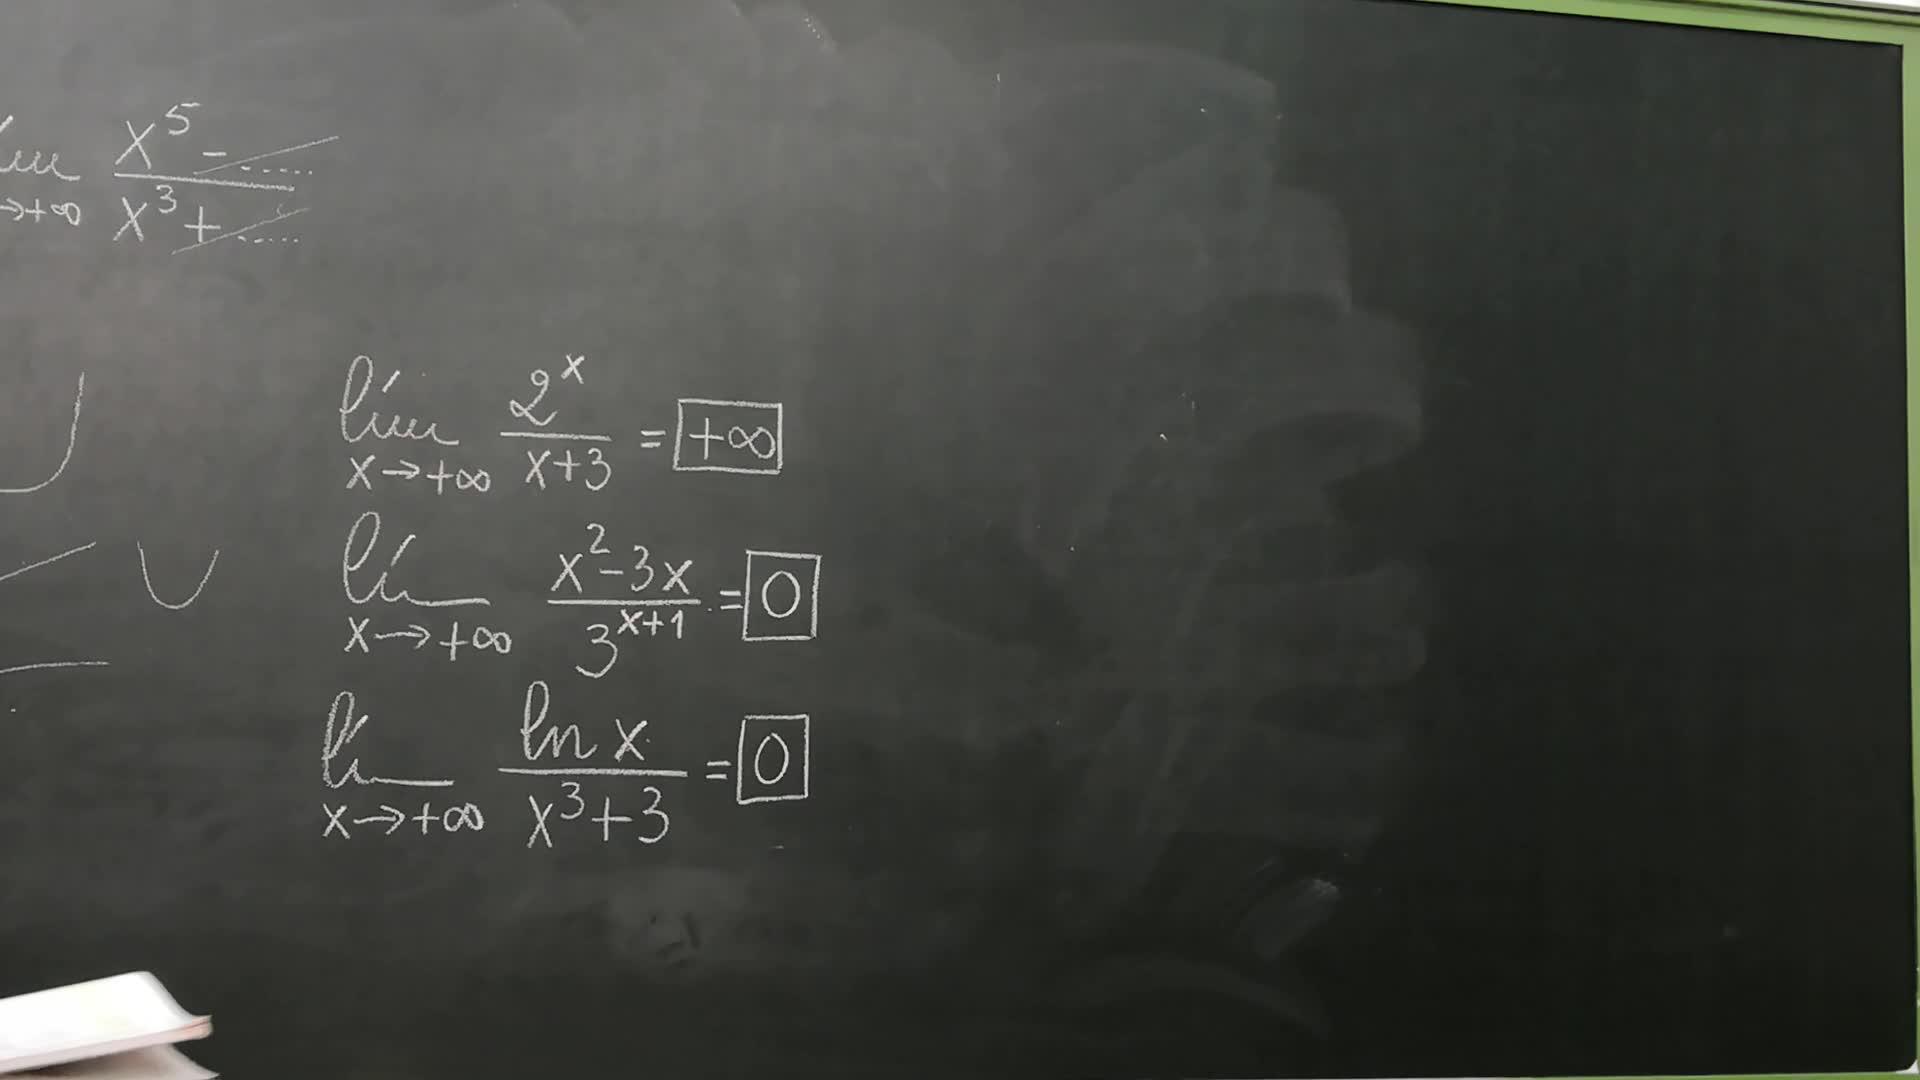 lím x→+∞ (x^5 - ....)/(x^3 + ....)
lím x→+∞ 2^x/(x+3) = +∞
lí x→+∞ (x^2-3x)/3^(x+1) = 0
lí x→+∞ ln x/(x^3+3) = 0